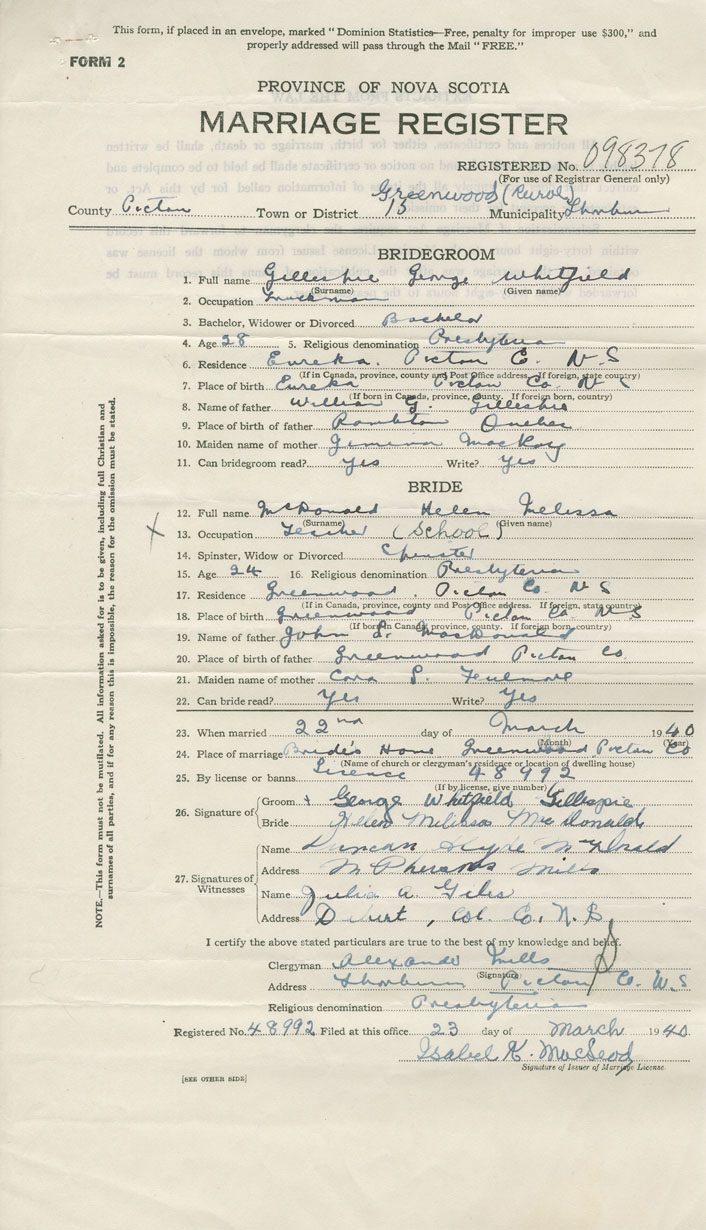 This form, if placed in an envelope, marked "Dominion Statistics—Free, penalty for improper use $300," and
properly addressed will pass through the Mail "FREE."
FORM 2
PROVINCE OF NOVA SCOTIA
MARRIAGE REGISTER
REGISTERED No. 098378
(For use of Registrar General only)
Greenwood (Rural)
County Pictou Town or District 13 Municipality Thorburn
BRIDEGROOM
1. Full name Gillespie George Whitfield
(Surname) (Given name)
2. Occupation Truckman
3. Bachelor, Widower or Divorced Bachelor
4. Age 28 5. Religious denomination Presbyterian
6. Residence Eureka. Pictou C. N.S
(If in Canada, province, county and Post Office address. If foreign, state country)
7. Place of birth Eureka Pictou Co. N S
(If born in Canada, province, county. If foreign born, country)
8. Name of father William G. Gillespie
9. Place of birth of father Quebec
10. Maiden name of mother Jemima MacKay
11. Can bridegroom read? Yes Write? Yes
BRIDE
12. Full name McDonald Helen Melissa
(Surname) (Given name)
13. Occupation Teacher (School)
14. Spinster, Widow or Divorced Spinster
15. Age 24 16. Religious denomination Presbyterian
17. Residence Greenwood. Pictou Co. N S
(If in Canada, province, county and Post Office address. If foreign, state country)
18. Place of birth Greenwood Pictou Co N S
(If born in Canada, province, county. If foreign born, country)
19. Name of father John L. MacDonald
20. Place of birth of father Greenwood Pictou Co.
21. Maiden name of mother Cora S.
22. Can bride read? Yes Write? Yes
23. When married 22nd day of March 1940
(Month) (Year)
24. Place of marriage Bride's Home Greenwood Pictou Co
(Name of church or clergyman's residence or location of dwelling house)
25. By license or banns Licence 48992
(If by license, give number)
26. Signature of Groom George Whitfield Gillespie
Bride Helen Melissa MacDonald
27. Signatures of Witnesses
Name Duncan McDonald
Address McPhersons Mills
Name Julia A. Giles
Address Debert, Col. Co. N.S.
I certify the above stated particulars are true to the best of my knowledge and belief.
Clergyman Alexander Mills
(Signature)
Address Thorburn Pictou Co. N.S
Religious denomination Presbyterian
Registered No. 48992 Filed at this office 23 day of March 1940
Isabel K. MacLeod
Signature of Issuer of Marriage License.
[SEE OTHER SIDE]
NOTE.—This form must not be mutilated. All information asked for is to be given, including full Christian and
surnames of all parties, and if for any reason this is impossible, the reason for the omission must be stated.